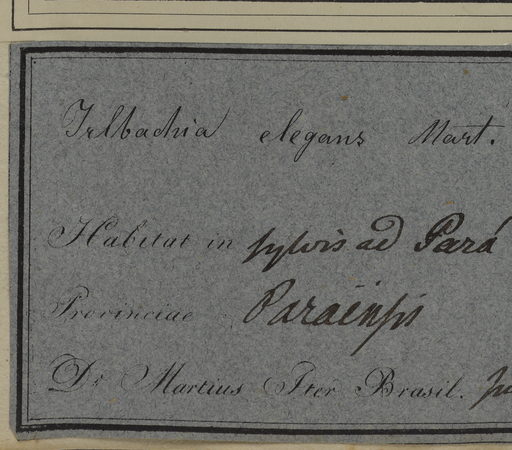 Irlbachia elegans Mart.
Habitat in sylvis ad Pará
Provinciae Paraënsis
Dr Martius Iter Brasil.